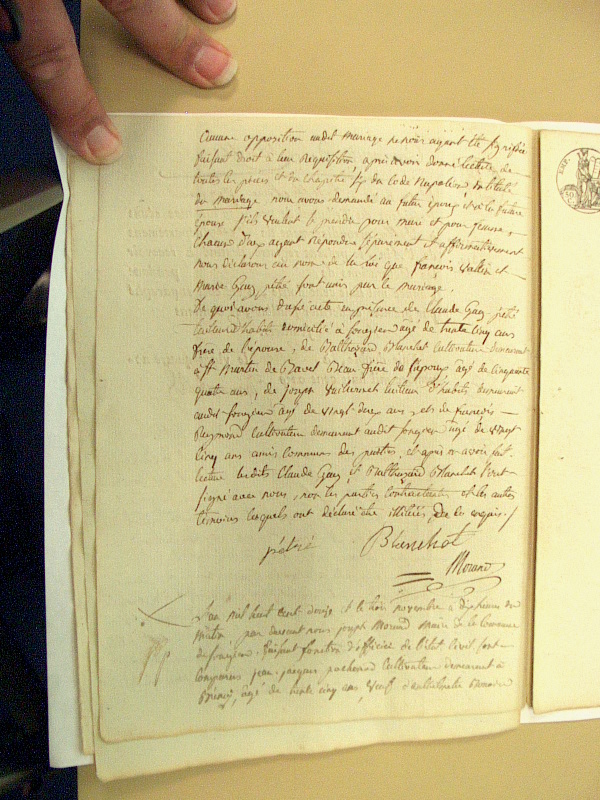 Aucune opposition audit mariage ne nous ayant été signifiée
faisant droit à leur réquisition après avoir donné lecture de
toutes les pièces et du chapitre du Code Napoléon intitulé
du mariage nous avons demandé au futur époux et à la future
épouse s'ils veulent se prendre pour mari et pour femme,
chacun d'eux ayant répondu séparément et affirmativement
nous déclarons au nom de la loi que françois et
Marie Guy sont unis par le mariage.
De quoi avons dressé acte en présence de Claude Guy
tailleur d'habits domicilié à âgé de trente cinq ans
frère de l'épouse, de Balthazard Blanchot cultivateur demeurant
à St Martin de Bavel Beau frère de l'épouse agé de cinquante
quatre ans, de joseph tailleur d'habits demeurant
audit agé de vingt deux ans, et de francois
Reymond cultivateur demeurant audit agé de vingt
cinq ans amis communs des parties, et après en avoir fait
lecture lesdits Claude Guy et Balthazard Blanchot l'ont
signé avec nous, non les parties contractantes et les autres
témoins lesquels ont déclaré être illitérés, de ce requis./
Blanchot
Morand
L'an mil huit cent douze et le trois novembre à dix heures du
matin, par devant nous joseph Morand Maire de la commune
de faisant fonction d'officier de l'état civil, sont
comparus jean jacques cultivateur demeurant à
agé de trente cinq ans, veuf d'anthelmette